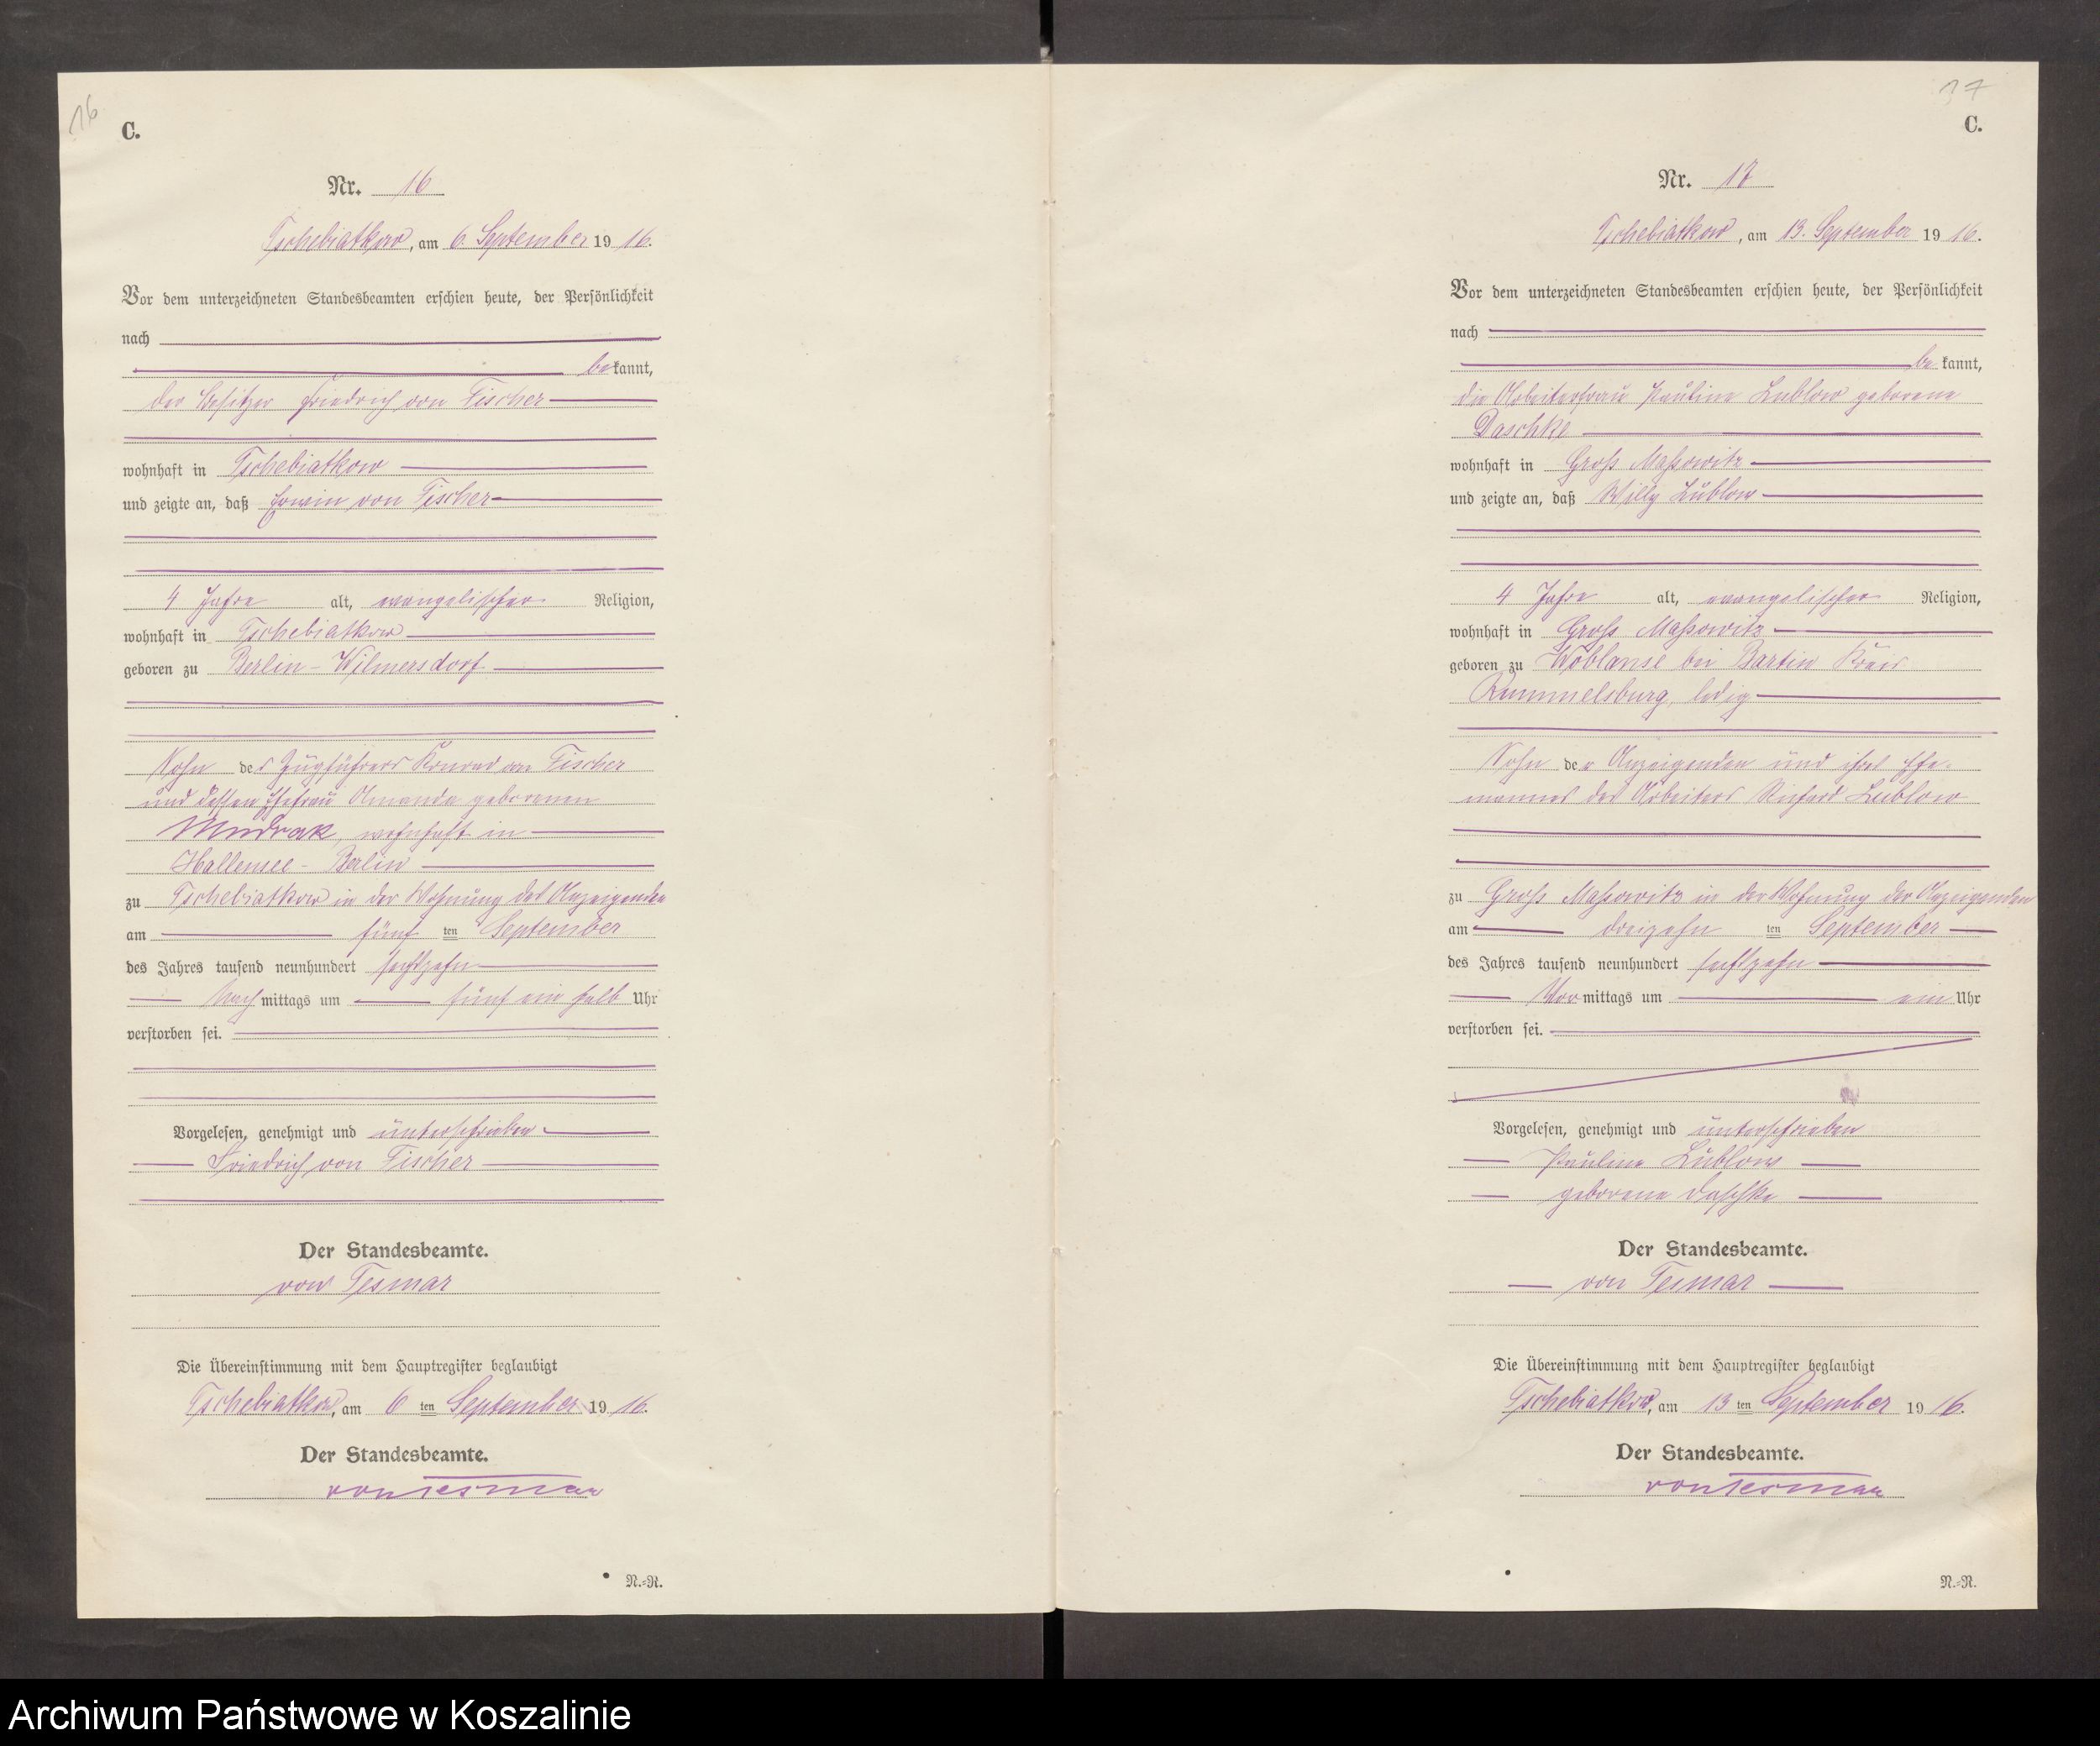 16
C.
Nr. 16
Tschebiatkow, am 6. September 1916.
Vor dem unterzeichneten Standesbeamten erschien heute, der Persönlichkeit
nach
bekannt,
der Besitzer Friedrich von Fischer
wohnhaft in Tschebiatkow
und zeigte an, daß Erwin von Fischer
4 Jahre alt, evangelischer Religion,
wohnhaft in Tschebiatkow
geboren zu Berlin-Wilmersdorf
Sohn des Zugführers Konrad von Fischer
und dessen Ehefrau Amanda geborenen
Mudrak, wohnhaft in
Hallensee-Berlin
zu Tschebiatkow in der Wohnung des Anzeigenden
am fünf ten September
des Jahres tausend neunhundert sechszehn
Nachmittags um fünf ein halb Uhr
verstorben sei.
Vorgelesen, genehmigt und unterschrieben
Friedrich von Fischer
Der Standesbeamte.
von Tesmar
Die Übereinstimmung mit dem Hauptregister beglaubigt
Tschebiatkow, am 6 ten September 1916.
Der Standesbeamte.
von Tesmar
N.=R.
17
C.
Nr. 17
Tschebiatkow, am 13. September 1916.
Vor dem unterzeichneten Standesbeamten erschien heute, der Persönlichkeit
nach
bekannt,
die Arbeiterfrau Pauline Lublow geborene
Daschke
wohnhaft in Gross Massowitz
und zeigte an, daß Willy Lublow
4 Jahre alt, evangelischer Religion,
wohnhaft in Gross Massowitz
geboren zu Woblanse bei Bartin Kreis
Rummelsburg, ledig
Sohn der Anzeigenden und ihres Ehe-
mannes des Arbeiters Richard Lublow
zu Gross Massowitz in der Wohnung der Anzeigenden
am dreizehn ten September
des Jahres tausend neunhundert sechszehn
Vormittags um ein Uhr
verstorben sei.
Vorgelesen, genehmigt und unterschrieben
Pauline Lublow
geborene Daschke
Der Standesbeamte.
von Tesmar
Die Übereinstimmung mit dem Hauptregister beglaubigt
Tschebiatkow, am 13 ten September 1916.
Der Standesbeamte.
von Tesmar
N.=R.
Archiwum Państwowe w Koszalinie